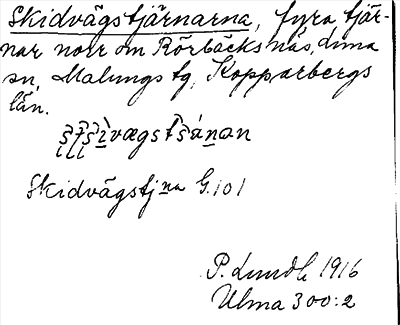 Skidvägstjärnarna, fyra tjär-
nar norr om Rörbäcksnäs, Lima
sn, Malungs tg, Kopparbergs
län.
Skidvägstjna G.101
P. Lundh 1916
Ulma 300:2